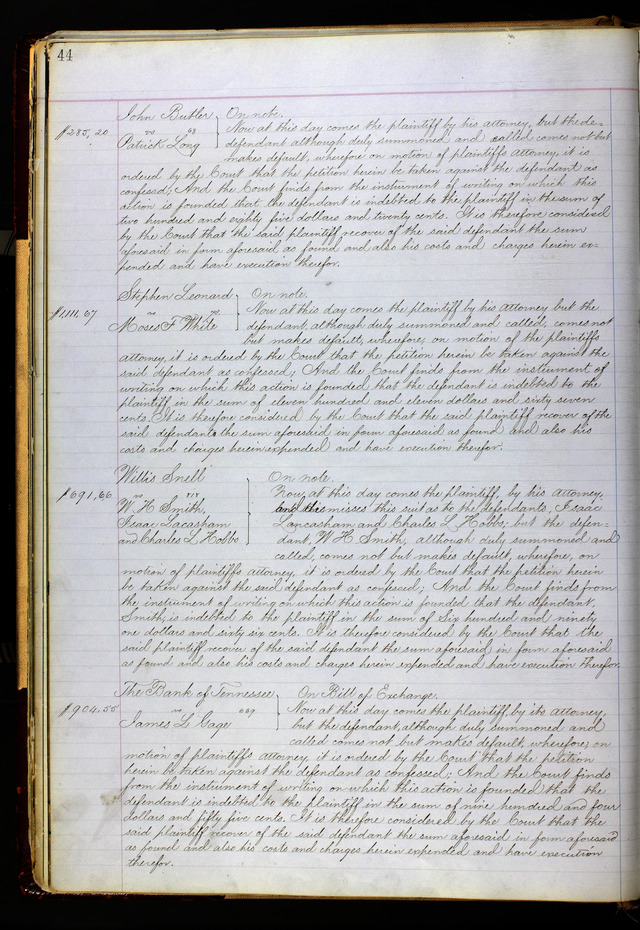 44
John Butler } On note.
$285,20 vs 68 Now at this day comes the plaintiff by his attorney, but the de=
Patrick Long defendant although duly summoned and called comes not but
makes default, wherefore on motion of plaintiffs attorney, it is
ordered by the Court that the petition herein be taken against the defendant as
confessed; And the Court finds from the instrument of writing on which this
action is founded that the defendant is indebted to the plaintiff in the sum of
two hundred and eighty five dollars and twenty cents. It is therefore considered
by the Court that the said plaintiff recover of the said defendant the sum
aforesaid in form aforesaid as found and also his costs and charges herein ex=
pended and have execution therefor.
Stephen Leonard } On note.
$1,111.67 vs Now at this day comes the plaintiff by his attorney but the
Moses F. White defendant, although duly summoned and called, comes not
but makes default, wherefore, on motion of the plaintiffs
attorney, it is ordered by the Court that the petition herein be taken against the
said defendant as confessed; And the Court finds from the instrument of
writing on which this action is founded, that the defendant is indebted to the
plaintiff in the sum of eleven hundred and eleven dollars and sixty seven
cents. It is therefore considered by the Court that the said plaintiff recover of the
said defendant the sum aforesaid in form aforesaid as found and also his
costs and charges herein expended and have execution therefor.
Willis Snell } On note.
$691,66 vs Now, at this day comes the plaintiff, by his attorney,
W. H. Smith, and dismisses this suit as to the defendants, Isaac
Isaac Lacasham Lancasham and Charles L. Hobbs; but the defen-
and Charles L. Hobbs dant, W. H. Smith, although duly summoned and
called, comes not but makes default, wherefore, on
motion of plaintiffs attorney, it is ordered by the Court that the petition herein
be taken against the said defendant as confessed; And the Court finds from
the instrument of writing on which this action is founded that the defendant,
Smith, is indebted to the plaintiff in the sum of Six hundred and ninety
one dollars and sixty six cents. It is therefore considered by the Court that the
said plaintiff recover of the said defendant the sum aforesaid in form aforesaid
as found and also his costs and charges herein expended and have execution therefor.
The Bank of Tennessee } On Bill of Exchange.
$904,55 vs Now at this day comes the plaintiff, by its attorney,
James L. Gage but the defendant, although duly summoned and
called comes not but makes default, wherefore, on
motion of plaintiffs attorney, it is ordered by the Court that the petition
herein be taken against the defendant as confessed; And the Court finds
from the instrument of writing on which this action is founded that the
defendant is indebted to the plaintiff in the sum of nine hundred and four
dollars and fifty five cents. It is therefore considered by the Court that the
said plaintiff recover of the said defendant the sum aforesaid in form aforesaid
as found and also his costs and charges herein expended and have execution
therefor.